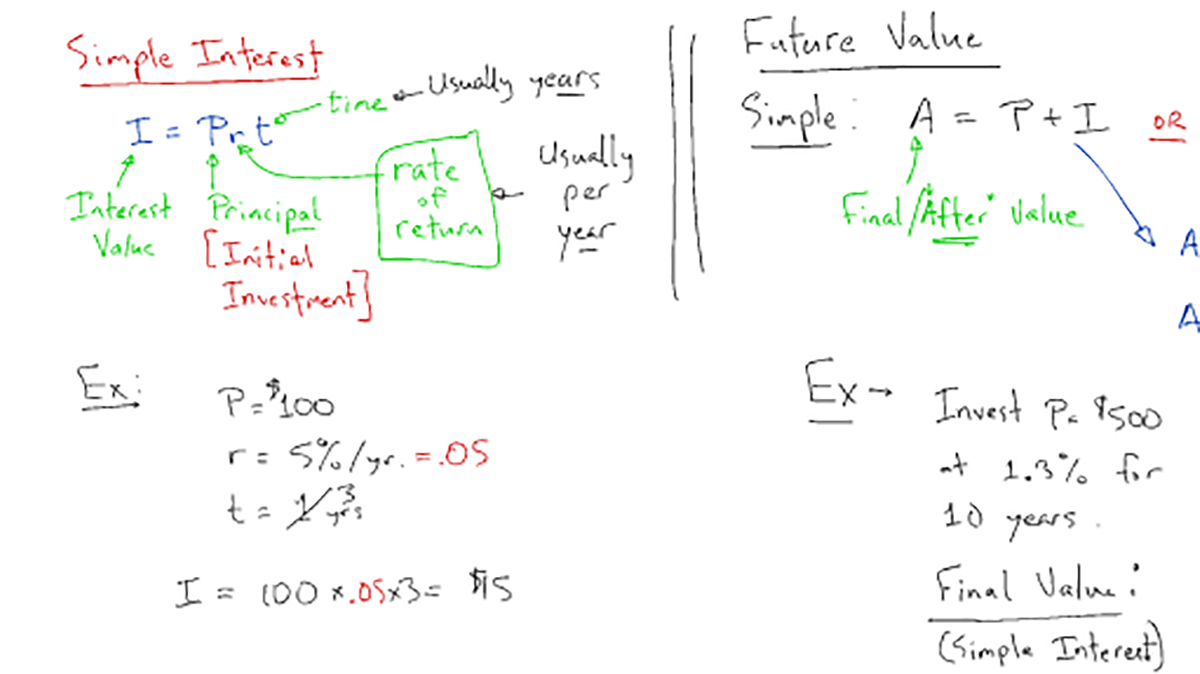 Simple Interest
I = Prt
time ← Usually years
Interest Value
Principal
[Initial Investment]
rate of return
Usually per year
Ex:
P = $100
r = 5%/yr. = .05
t = 1 3 yrs
I = 100 x .05 x 3 = $15
Future Value
Simple: A = P + I OR
Final/"After" Value
A
A
Ex → Invest P = $500
at 1.3% for
10 years.
Final Value:
(Simple Interest)